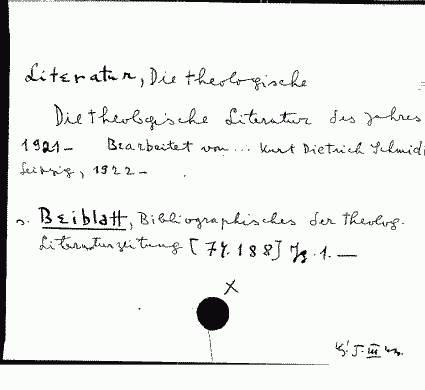 Literatur, Die theologische
Die theologische Literatur des Jahres
1921- Bearbeitet von ... Kurt Dietrich Schmidt
Leipzig, 1922-
s. Beiblatt, Bibliographisches der Theolog.
Literaturzeitung [74.188] Jg. 1. —
X